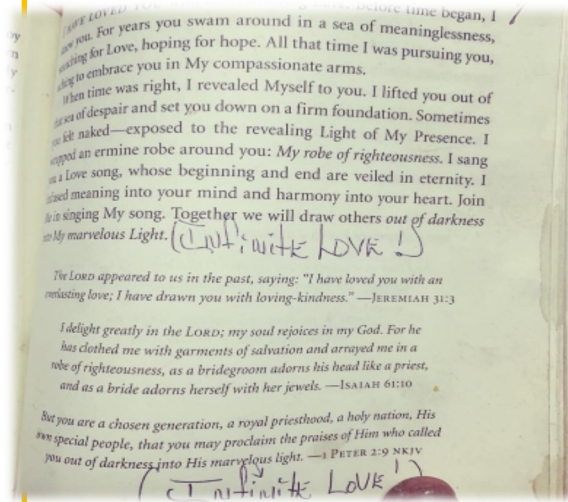 I HAVE LOVED YOU before time began, I
you. For years you swam around in a sea of meaninglessness,
for Love, hoping for hope. All that time I was pursuing you,
to embrace you in My compassionate arms.
When time was right, I revealed Myself to you. I lifted you out of
sea of despair and set you down on a firm foundation. Sometimes
felt naked—exposed to the revealing Light of My Presence. I
an ermine robe around you: My robe of righteousness. I sang
a Love song, whose beginning and end are veiled in eternity. I
meaning into your mind and harmony into your heart. Join
in singing My song. Together we will draw others out of darkness
My marvelous Light. (INfiNitE LOVE!)
The LORD appeared to us in the past, saying: "I have loved you with an
everlasting love; I have drawn you with loving-kindness." —JEREMIAH 31:3
I delight greatly in the LORD; my soul rejoices in my God. For he
has clothed me with garments of salvation and arrayed me in a
robe of righteousness, as a bridegroom adorns his head like a priest,
and as a bride adorns herself with her jewels. —ISAIAH 61:10
But you are a chosen generation, a royal priesthood, a holy nation, His
own special people, that you may proclaim the praises of Him who called
you out of darkness into His marvelous light. —1 PETER 2:9 NKJV
(INfiNitE LOVE!)